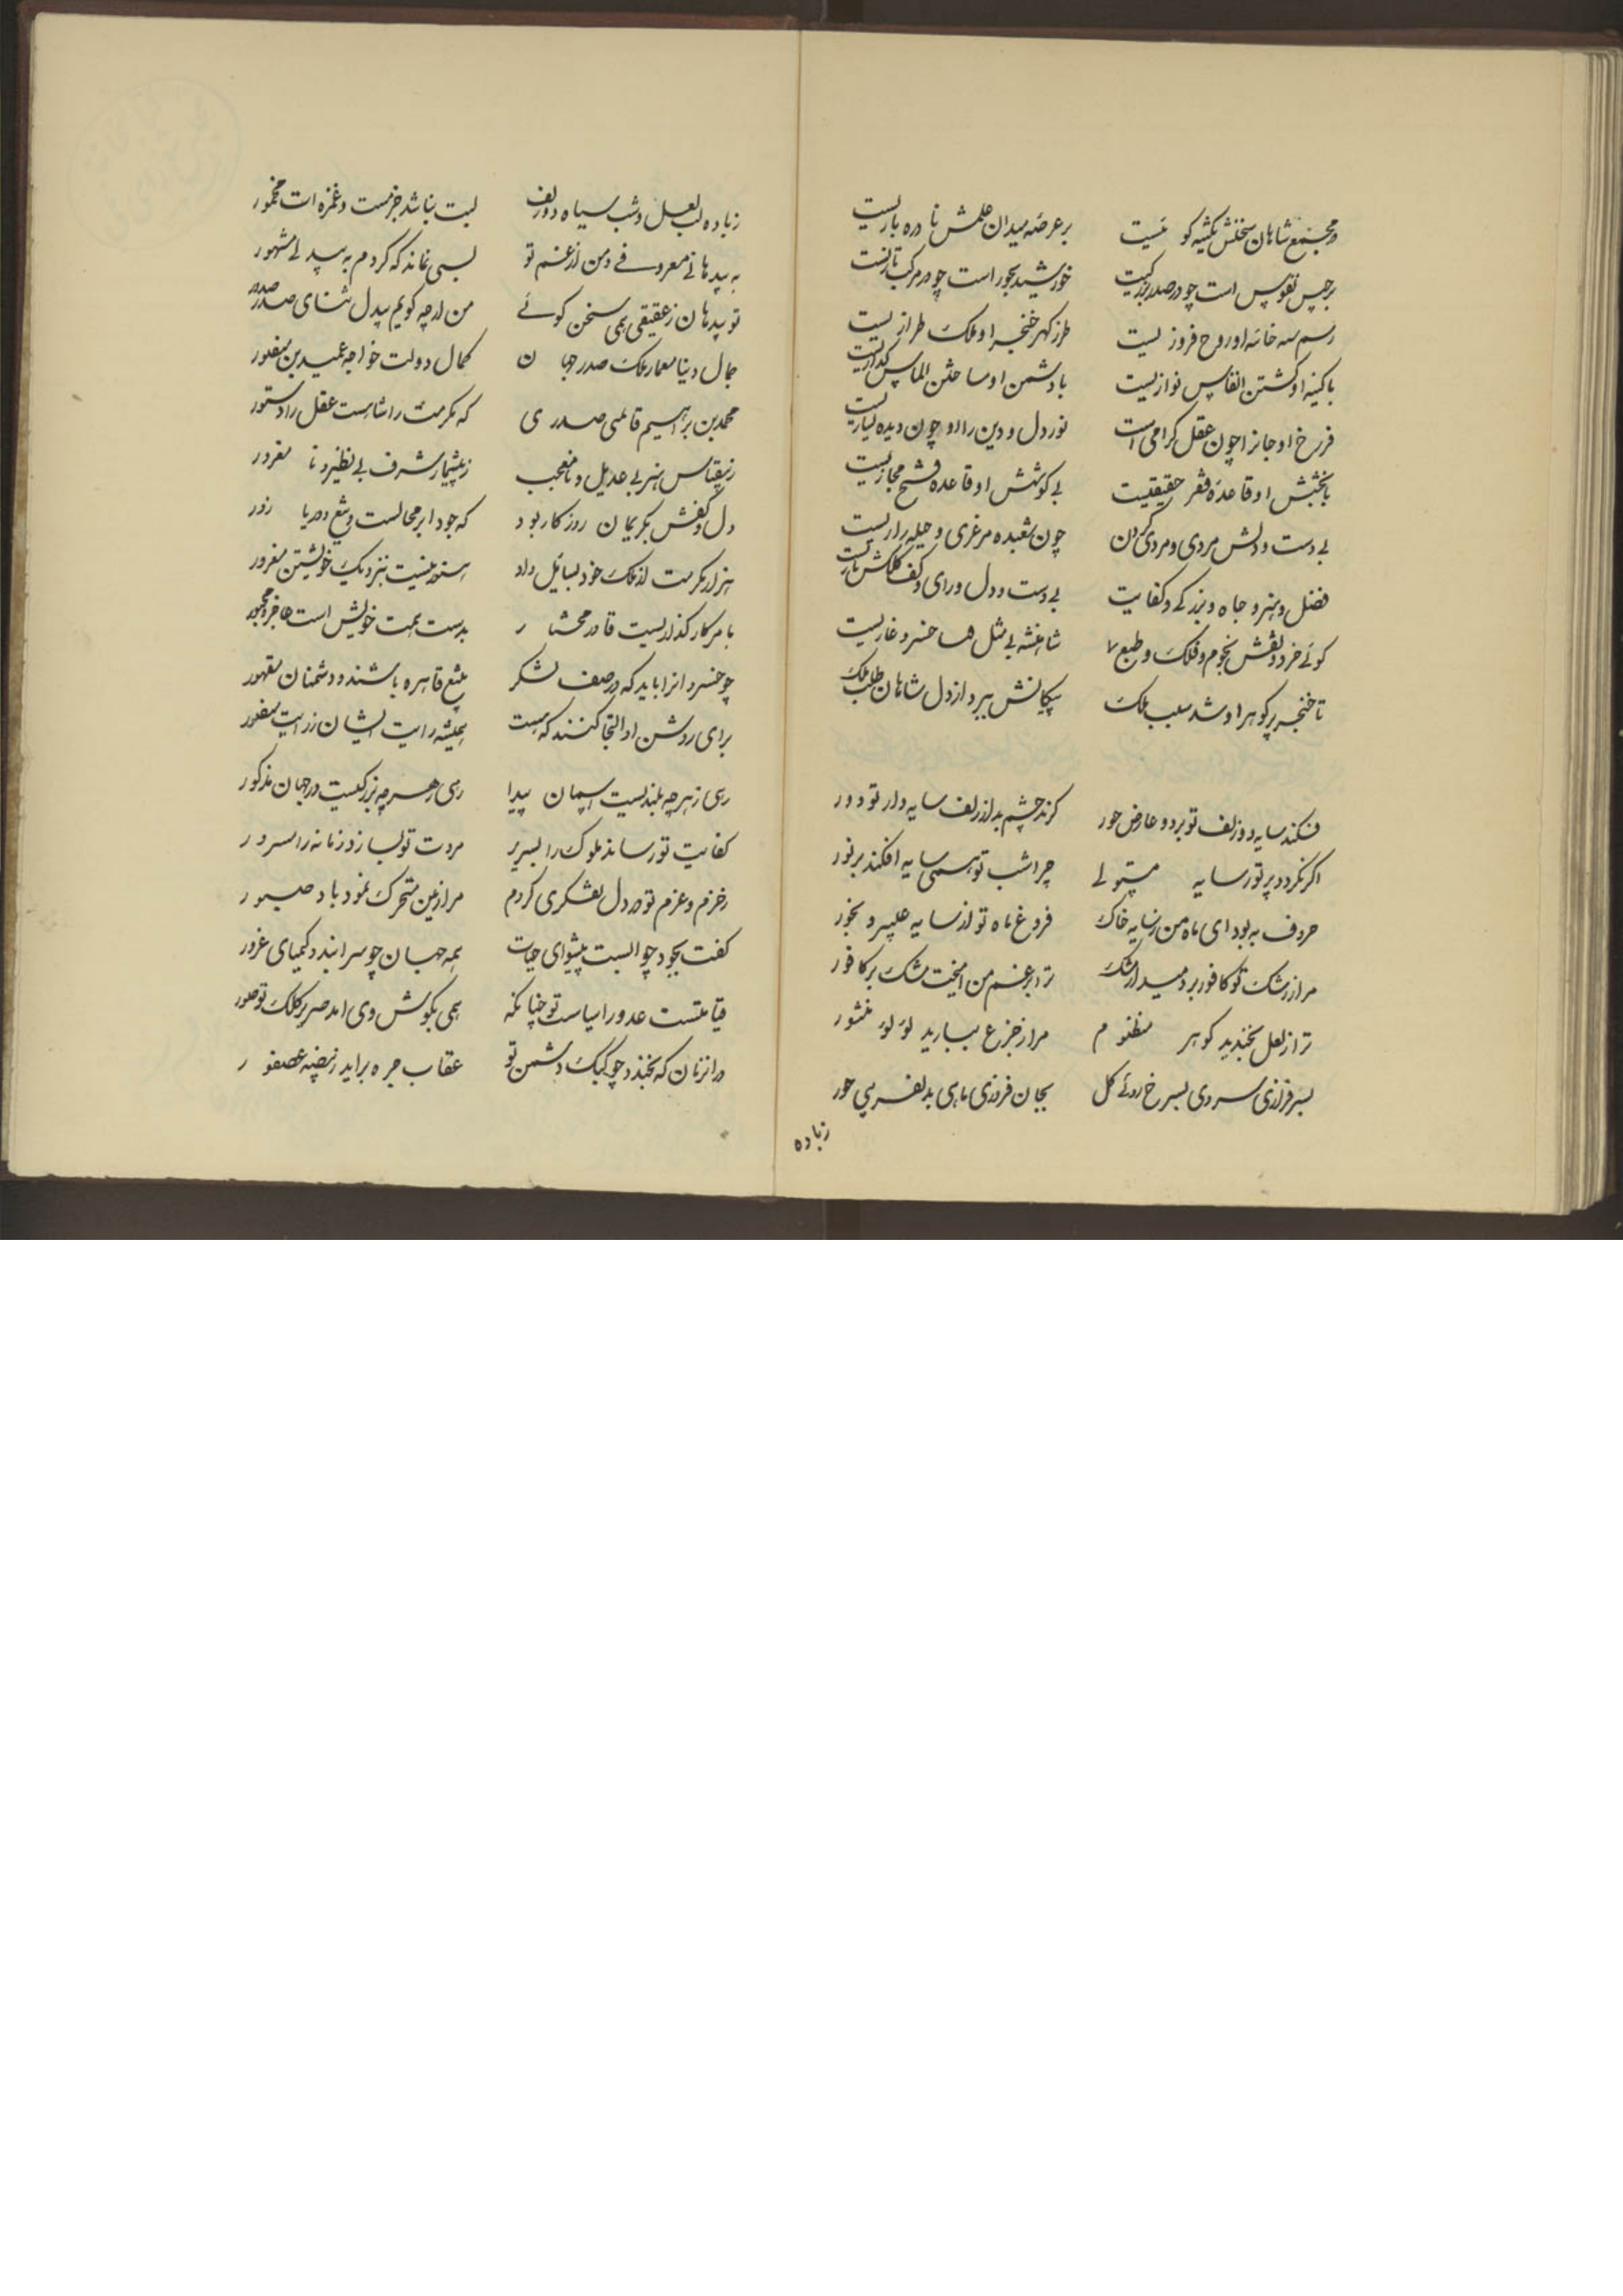 در مجمع شاهان سخنش نکته کو نیست بر عرضه میدان علمش نادره بازیست
برجیس نفوس است چو در صدر بزرکیست خورشید بجور است چو در مرکب تازیست
رسم سه خانه او روح فروزیست طرز کهر خنجر او ملک طرازیست
با کینه او کشتن انفاس نوازیست با دشمن او ساختن الماس کدازیست
فرخ او جانرا چون عقل کرامی است نور دل و دین را او چون دیده نیازیست
با بخشش او قاعده فقر حقیقیست بی کوشش او قاعده فتح مجازیست
بی دست و دلش مردی و مردی کردن چون شعبده مرغزی و حیله رازیست
فضل و هنر و جاه و بزرکی و کفایت بی دست و دل و رای و کف کلکش
کوئی خرد و نقش نجوم و فلک و طبع شاهنشه بی مثل خسرو غازیست
تا خنجر پر کوهر او شد سلب ملک پیکانش ببرد از دل شاهان طلب ملک
فکند سایه دو زلف تو بر دو عارض حور کزند چشم بد از زلف سایه دار تو دور
اکر نکردد پر تو ر سایه مستولی چرا شب تو همی سایه افکند بر نور
حروف به بود ای ماه من ز سایه خاک فروغ ماه تو از سایه عبیر و بخور
مرا ز رشک تو کافور بر دمید از مشک ترا برغم من امیخت مشک بر کافور
ترا ز لعل بخندید کوهر منظوم مرا ز جزع ببارید لؤلؤ منثور
بسر فرازی سروی بسرخ روئی کل بجان فروزی ماهی بدلفریبی حور
زباده
زباده لب لعل و شب سیاه دو زلف لبت نباشد جز مست و غمزه ات مخمور
به بیدهانی معروفی و من از غم تو بسی نماند که کردم به بیدلی مشهور
تو بیدهان ز عقیقی همی سخن کوئی من ارچه کویم بیدل ثنای صدر صدور
جمال دنیا معمار ملک صدر جهان کمال دولت خواجه عمید بن منصور
محمد بن براهیم قاطمی صدری که مکرمت را شاهست عقل را دستور
ز بیقیاس هنر بی عدیل و نامعجب ز بیشمار شرف بی نظیر و نامغرور
دل و کفش بکریمان روزکار بود که جود ابر محالست و تیغ دریا زور
هزار مکرمت از ملک خود بسائل داد ستوده نیست بنزدیک خویشتن مغرور
بامر کار کذاریست قادر مختار بدست همت خویش است عاجز و مجبور
چو خسروانرا باید که در صف لشکر بتیغ قاهره باشند و دشمنان مقهور
برای روشن او التجا کنند که هست همیشه رایت ایشان ز رایت منصور
رهی ز هر چه بلندیست اسمان پیدا رهی ز هر چه بزرکیست در جهان مذکور
کفایت تو رساند ملوک را بسریر مروت تو بسازد زمانه را سرور
ز حزم و عزم تو در دل تفکری کردم مرا زمین متحرک نمود باد صبور
کفت بجود چو البست پیشوای حیات همه جهان چو سرابند و کیمیای غرور
قیامتست عدو را سیاست تو چنانکه همی بکوش وی امد صریر کلک تو صور
در انزمان که بخندد چو کبک دشمن تو عقاب جره براید ز بیضه عصفور